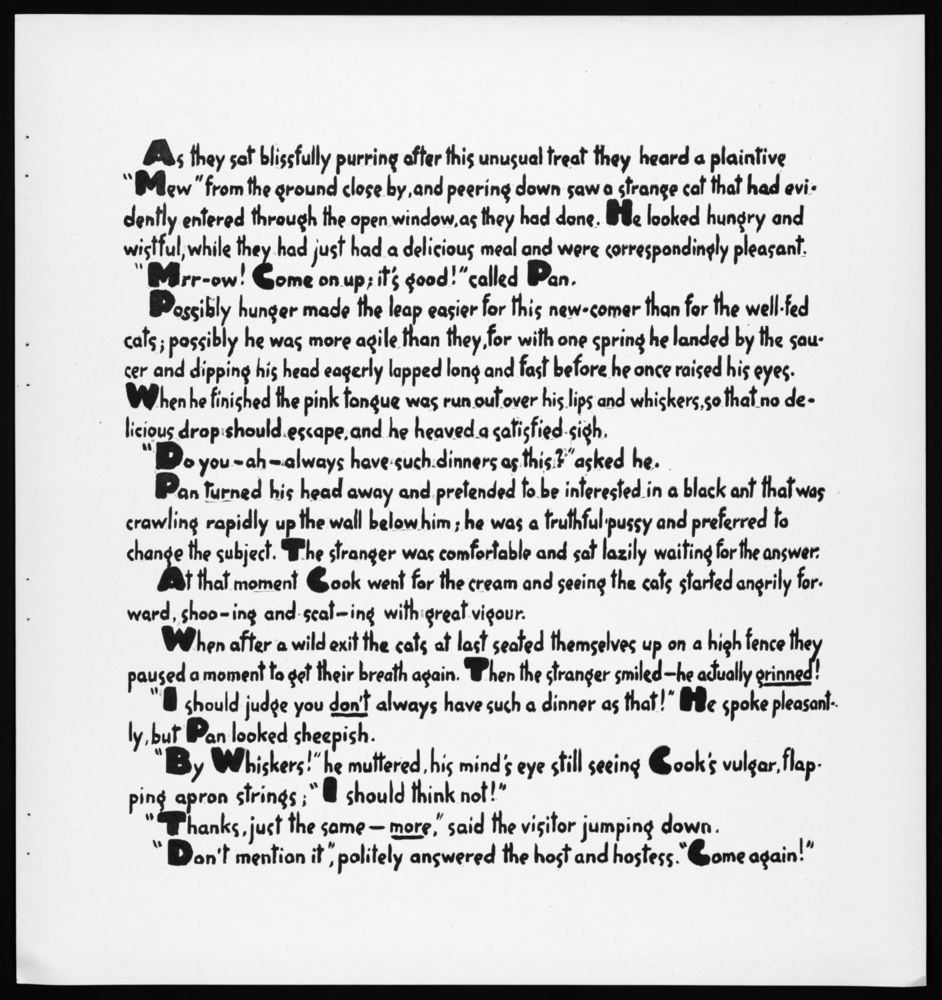 As they sat blissfully purring after this unusual treat they heard a plaintive
"Mew" from the ground close by, and peering down saw a strange cat that had evi-
dently entered through the open window, as they had done. He looked hungry and
wistful, while they had just had a delicious meal and were correspondingly pleasant.
"Mrr-ow! Come on up; it's good!" called Pan.
Possibly hunger made the leap easier for this new-comer than for the well-fed
cats; possibly he was more agile than they, for with one spring he landed by the sau-
cer and dipping his head eagerly lapped long and fast before he once raised his eyes.
When he finished the pink tongue was run out over his lips and whiskers, so that no de-
licious drop should escape, and he heaved a satisfied sigh.
"Do you-ah-always have such dinners as this?" asked he.
Pan turned his head away and pretended to be interested in a black ant that was
crawling rapidly up the wall below him; he was a truthful pussy and preferred to
change the subject. The stranger was comfortable and sat lazily waiting for the answer.
At that moment Cook went for the cream and seeing the cats started angrily for-
ward, shoo-ing and scat-ing with great vigour.
When after a wild exit the cats at last seated themselves up on a high fence they
paused a moment to get their breath again. Then the stranger smiled—he actually grinned!
"I should judge you don't always have such a dinner as that!" He spoke pleasant-
ly, but Pan looked sheepish.
"By Whiskers!" he muttered, his mind's eye still seeing Cook's vulgar, flap-
ping apron strings; "I should think not!"
"Thanks, just the same — more," said the visitor jumping down.
"Don't mention it", politely answered the host and hostess. "Come again!"